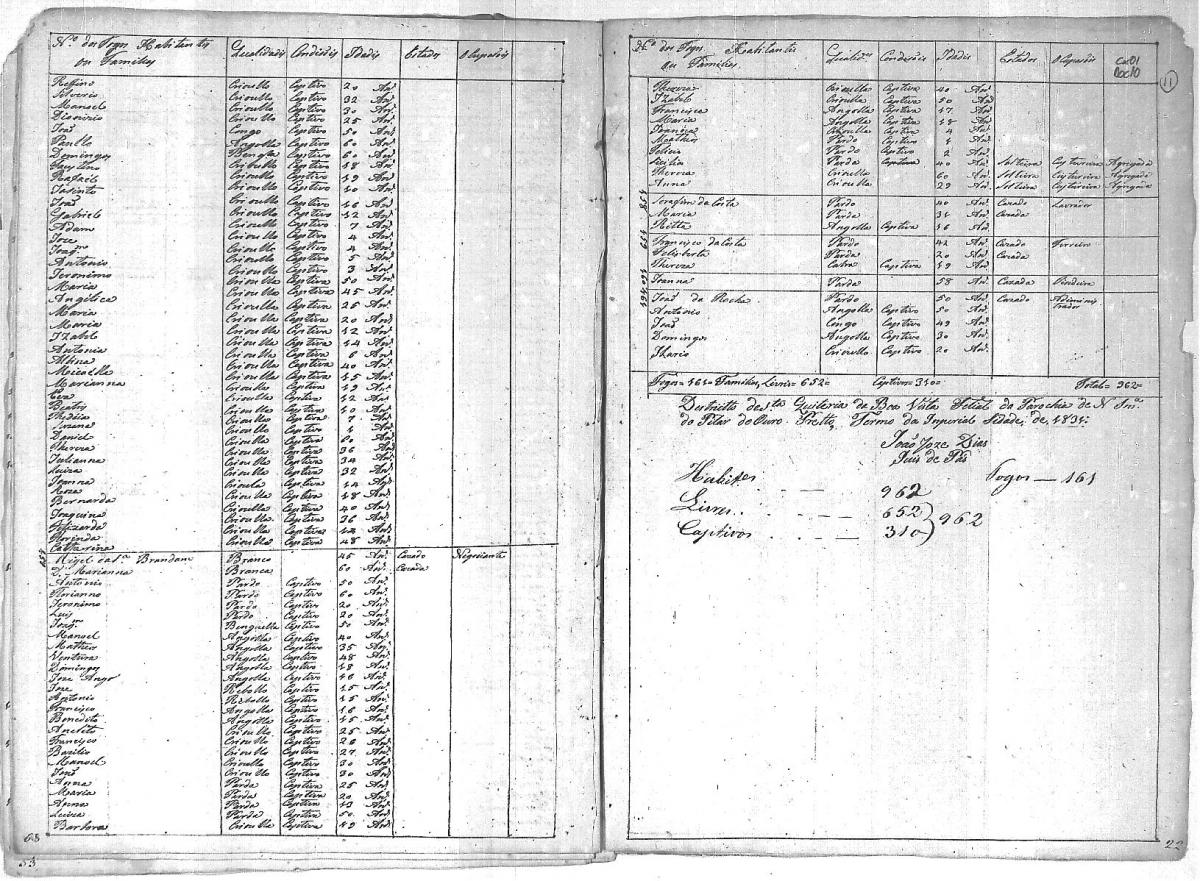 N.º dos Fogos Habitantes ou Familias Qualidades Condissões Idades Estados Ocupasois
Ruffino Crioullo Captivo 20 An.
Silverio Crioullo Captivo 32 An.
Manoel Crioullo Captivo 30 An.
Dionizio Crioullo Captivo 25 An.
João Congo Captivo 50 An.
Paullo Angolla Captivo 60 An.
Domingos Bengla Captivo 60 An.
Crioullo Captivo 18 An.
Rafael Crioullo Captivo 19 An.
Jasinto Crioullo Captivo 10 An.
João Crioullo Captivo 16 An.
Gabriel Crioullo Captivo 12 An.
Adam Crioullo Captivo 7 An.
Joze Crioullo Captivo 4 An.
Joaq.m Crioullo Captivo 4 An.
Antonio Crioullo Captivo 5 An.
Jeronimo Crioullo Captivo 3 An.
Maria Crioulla Captiva 50 An.
Angelica Crioulla Captiva 45 An.
Maria Crioulla Captiva 25 An.
Maria Crioulla Captiva 20 An.
Izabel Crioulla Captiva 12 An.
Antonia Crioulla Captiva 14 An.
Albina Crioulla Captiva 6 An.
Micaella Crioulla Captiva 40 An.
Marianna Crioulla Captiva 15 An.
Eva Crioulla Captiva 19 An.
Beatris Crioulla Captiva 12 An.
Crioulla Captiva 10 An.
Crioulla Captiva 7 An.
Daniel Crioullo Captivo
Thereza Crioulla Captiva
Julianna Crioulla Captiva 36 An.
Luiza Crioulla Captiva 34 An.
Joanna Crioulla Captiva 32 An.
Roza Crioulla Captiva 14 An.
Bernarda Crioulla Captiva 18 An.
Joaquina Crioulla Captiva 40 An.
Felizarda Crioulla Captiva 36 An.
Florinda Crioulla Captiva 44 An.
Catharina Crioulla Captiva 48 An.
Brandam Branco 45 An. Cazado Negociante
D. Marianna Branca 60 An. Cazada
Antonio Pardo Captivo 50 An.
Florianno Pardo Captivo 60 An.
Jeronimo Pardo Captivo 20 An.
Luis Pardo Captivo 20 An.
Joaq.m Benguella Captivo 50 An.
Manoel Angolla Captivo 40 An.
Matheos Angolla Captivo 35 An.
Ventura Angolla Captivo 48 An.
Domingos Angolla Captivo 18 An.
Joze Ango Angolla Captivo 16 An.
Joze Rebollo Captivo 15 An.
Antonio Rebollo Captivo 15 An.
Francisco Angolla Captivo 16 An.
Benedito Angolla Captivo 15 An.
Anecleto Crioullo Captivo 25 An.
Francisco Crioullo Captivo 26 An.
Bazilio Crioullo Captivo 27 An.
Manoel Crioullo Captivo 30 An.
João Crioullo Captivo 30 An.
Anna Parda Captiva 25 An.
Maria Parda Captiva 20 An.
Anna Parda Captiva 13 An.
Luiza Parda Captiva 50 An.
Barbara Crioulla Captiva 49 An.
53
N.º dos Fogos Habitantes ou Familias Qualid.es Condisões Idades Estados Ocupasois
Cx01
Doc10
11
Thereza Crioulla Captiva 40 An.
Izabel Crioulla Captiva 50 An.
Francisca Angolla Captiva 17 An.
Maria Angolla Captiva 18 An.
Crioulla Captiva 4 An.
Matheos Pardo Captivo 1 An.
Felicio Pardo Captivo 2 An.
Sicilia Parda Captiva 40 An. Solteira Custureira Agregada
Thereza Crioulla 60 An. Solteira Custureira Agregada
Anna Crioulla 29 An. Solteira Custureira Agregada
Serafim da Costa Pardo 40 An. Cazado Lavrador
Maria Parda 31 An. Cazada
Ritta Angolla Captiva 16 An.
Francisco da Costa Pardo 42 An. Cazado Ferreiro
Felisberta Parda 20 An. Cazada
Thereza Cabra Captiva 19 An.
Joanna Parda 58 An. Cazada
João da Rocha Pardo 50 An. Cazado Adiminis trador
Antonio Angolla Captivo 50 An.
João Congo Captivo 49 An.
Domingos Angolla Captivo 30 An.
Ilario Crioullo Captivo 20 An.
Fogos = 161 = Familias, Livres = 652 = Captivos = 310 = Total = 962 =
Destricto de S.ta Quiteria da Boa Vista Felial da Parochia de N Sn.ra
do Pilar do Ouro Pretto, Termo da Inperial Sidade, de 1831.
João Joze Dias
Juis de Pas
Habites 962 Fogos — 161
Livres 652
Captivos 310 } 962
22